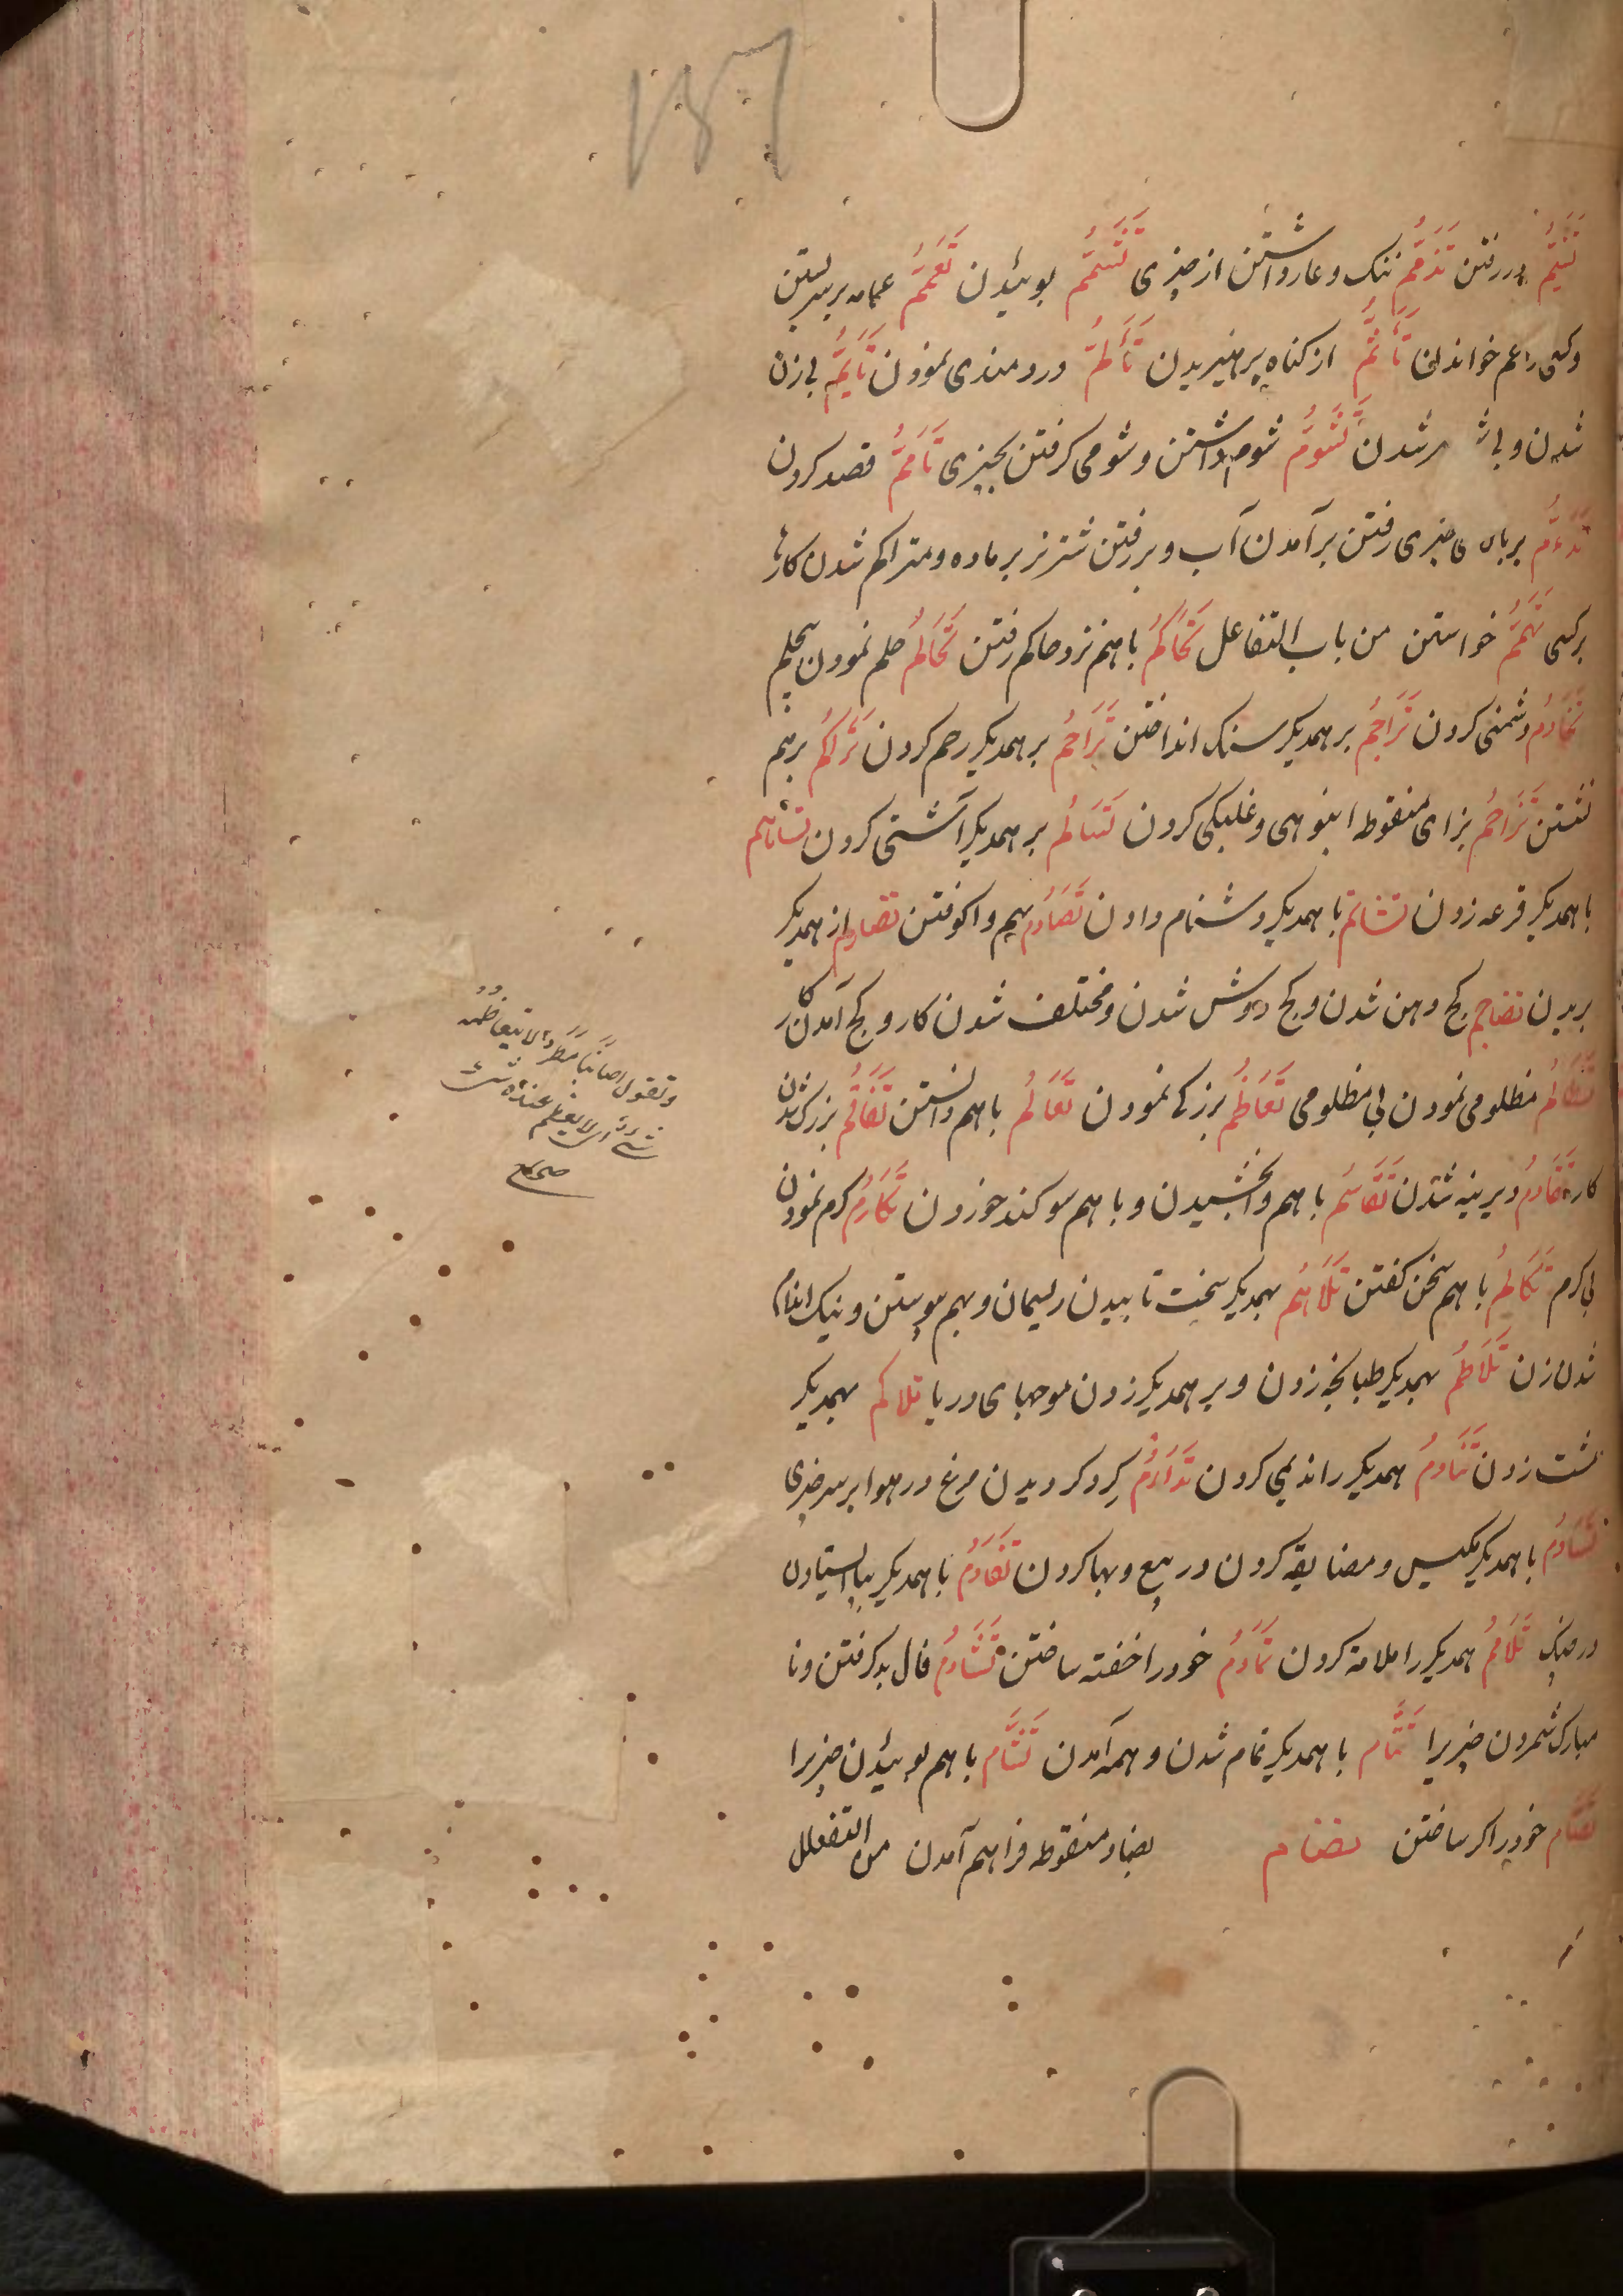 در رفتن تَذَمُّمُ ننک و عار داشتن از چیزی تَشَمُّمُ بوئیدن تَعَمُّمُ عمامه بر سر بستن
و کسی را عم خواندن تَأَثُّمُ از کناه پرهیزیدن تَأَلُّمُ دردمندی نمودن تَأَیُّمُ بی زن
شدن و بی شدن تَشَؤُّمُ شوم داشتن و شومی کرفتن بچیزی تَأَمُّمُ قصد کردن
رفتن برآمدن آب و بر رفتن شتر نر بر ماده و متراکم شدن کارها
بر کسی تَهَمُّمُ خواستن من باب التفاعل تَحَاکُمُ باهم نزد حاکم رفتن تَحَالُمُ حلم نمودن بیحلم
دشمنی کردن تَرَاجُمُ بر همدیکر سنک انداختن تَرَاحُمُ بر همدیکر رحم کردن تَرَاکُمُ برهم
نشستن تَزَاحُمُ بزای منقوطه انبوهی و غلبکی کردن تَسَالُمُ بر همدیکر آشتی کردن تساهم
با همدیکر قرعه زدن تشاتم با همدیکر دشنام دادن تَصَادُمُ بهم واکوفتن تصارم از همدیکر
بریدن تضاجم کج دهن شدن و کج دوش شدن و مختلف شدن کار و کج آمدن کار
تَظَالُمُ مظلومی نمودن بی مظلومی تَعَاظُمُ بزرکی نمودن تَعَالُمُ باهم دانستن تَفَاقُمُ بزرک شدن
کار تَقَادُمُ دیرینه شدن تَقَاسُمُ باهم وابخشیدن و باهم سوکند خوردن تَکَارُمُ کرم نمودن
بی کرم تَکَالُمُ باهم سخن کفتن تَلَاحُمُ بهمدیکر سخت تابیدن ریسمان و بهم پیوستن و نیک اندام
شدن زن تَلَاطُمُ بهمدیکر طبانجه زدن و بر همدیکر زدن موجهای دریا تلاکم بهمدیکر
مشت زدن تَنَادُمُ همدیکر را ندیمی کردن تَدَاوُمُ کرد کردیدن مرغ در هوا بر سر چیزی
تَسَاوُمُ با همدیکر مکیس و مضایقه کردن در بیع و بها کردن تَقَاوُمُ با همدیکر بپا ایستادن
در جنک تَلَاوُمُ همدیکر را ملامة کردن تَنَاوُمُ خود را خفته ساختن تَشَاؤُمُ فال بد کرفتن و نا
مبارک شمردن چیزیرا تَتَامُّ با همدیکر تمام شدن و همه آمدن تَشَامُّ باهم بوئیدن چیزیرا
تَصَامُّ خود را کر ساختن تضام بضاد منقوطه فراهم آمدن من التفعلل
وتقول اصابنا مطر لا یتعاظمه
شیء ای لا یعظم عنده شیء
صحاح